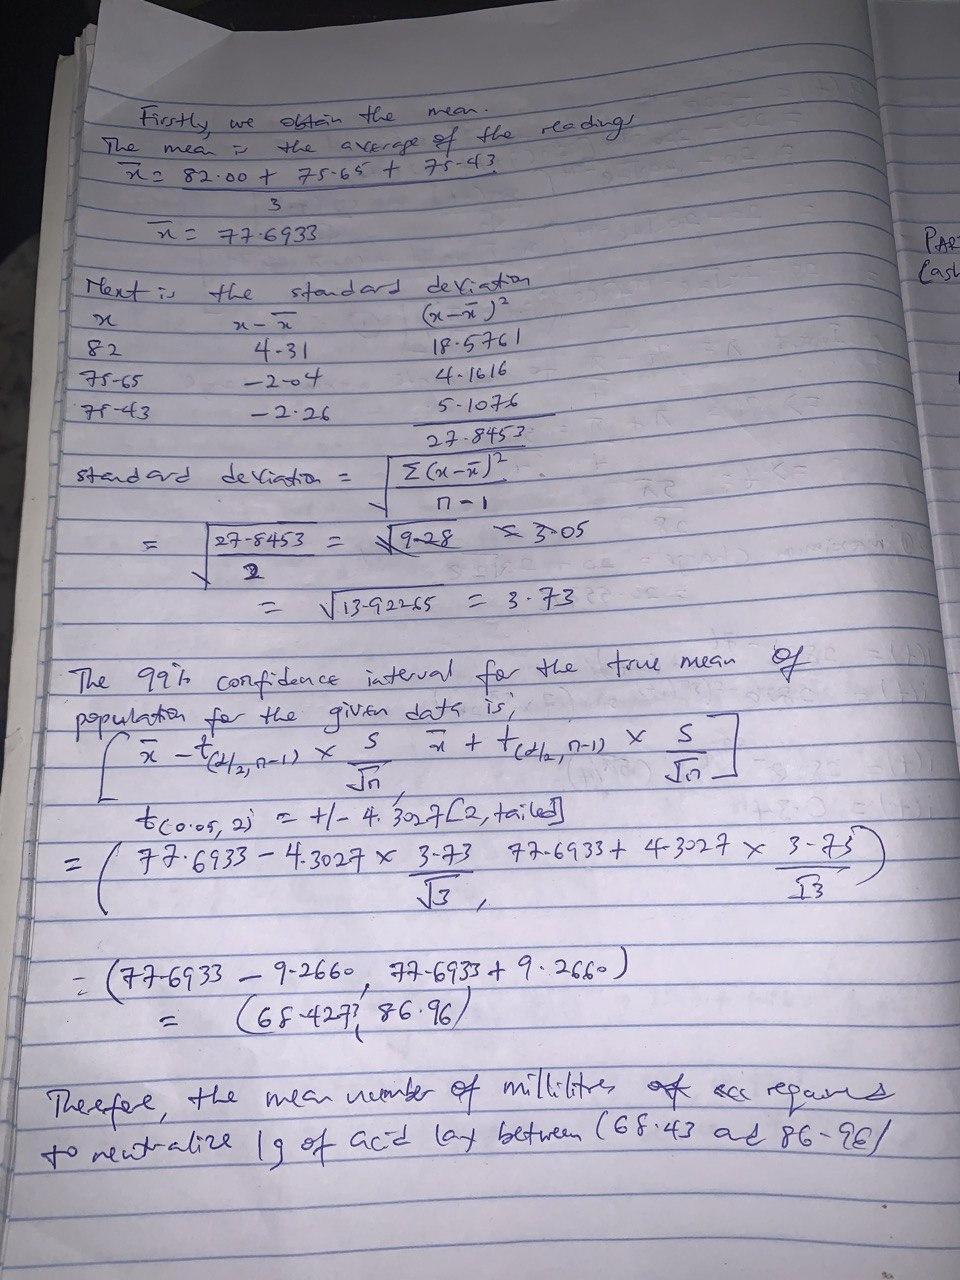 Firstly, we obtain the mean.
The mean is the average of the readings
x̄ = 82.00 + 75.65 + 75.43
3
x̄ = 77.6933
PART
Cash
Next is the standard deviation
x x - x̄ (x-x̄)²
82 4.31 18.5761
75.65 -2.04 4.1616
75.43 -2.26 5.1076
27.8453
standard deviation = √(Σ(x-x̄)² / n-1)
= √(27.8453 / 2) = √9.28 ≈ 3.05
= √13.92265 = 3.73
The 99% confidence interval for the true mean of
population for the given data is;
[x̄ - t(α/2, n-1) × s/√n, x̄ + t(α/2, n-1) × s/√n]
t(0.05, 2) = +/- 4.3027 [2, tailed]
= (77.6933 - 4.3027 × 3.73/√3, 77.6933 + 4.3027 × 3.73/√3)
= (77.6933 - 9.2660, 77.6933 + 9.2660)
= (68.4273, 86.96)
Therefore, the mean number of millilitres required
to neutralize 1g of acid lay between (68.43 and 86.96)